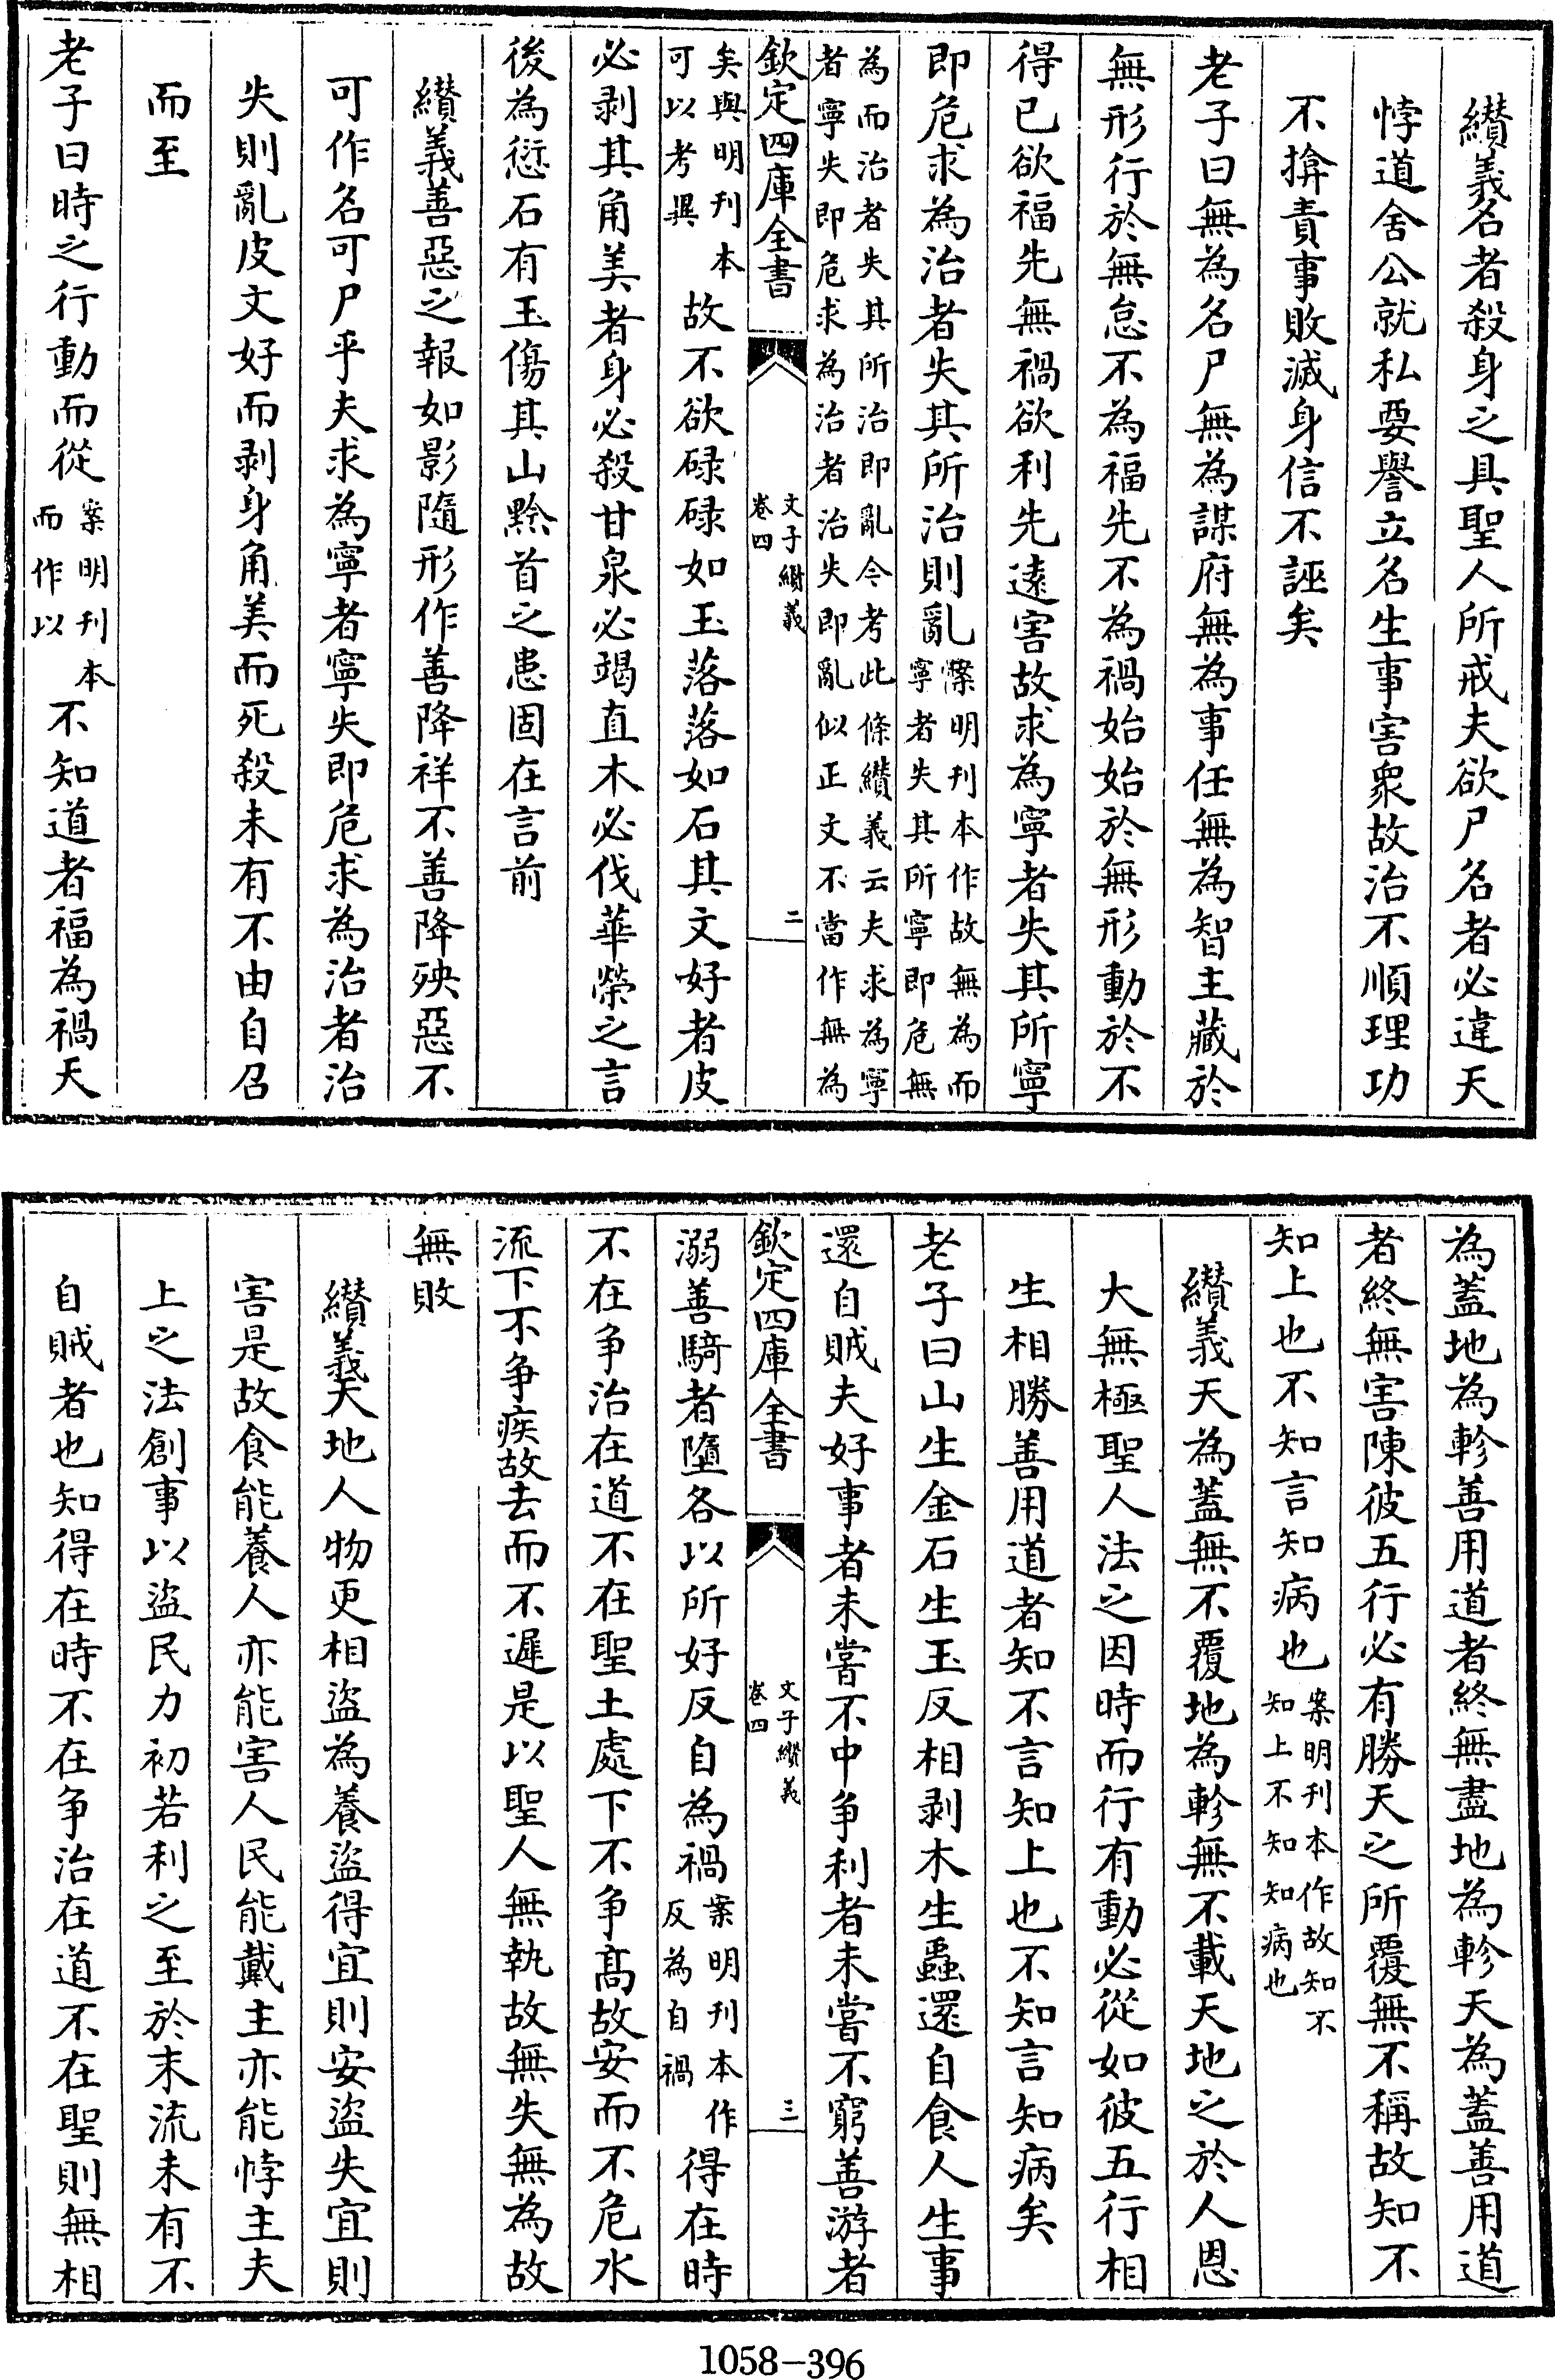 纘義名者殺身之具聖人所戒夫欲尸名者必違天
悖道舍公就私要譽立名生事害衆故治不順理功
不揜責事敗滅身信不誣矣
老子曰無為名尸無為謀府無為事任無為智主藏於
無形行於無怠不為福先不為禍始始於無形動於不
得已欲福先無禍欲利先遠害故求為寧者失其所寧
即危求為治者失其所治則亂
案明刊本作故無為而
寧者失其所寧即危無
為而治者失其所治即亂今考此條纘義云夫求為寧
者寧失即危求為治者治失即亂似正文不當作無為
欽定四庫全書
文子纘義
卷四
二
矣與明刊本
可以考異
故不欲碌碌如玉落落如石其文好者皮
必剥其角美者身必殺甘泉必竭直木必伐華榮之言
後為愆石有玉傷其山黔首之患固在言前
纘義善惡之報如影隨形作善降祥不善降殃惡不
可作名可尸乎夫求為寧者寧失即危求為治者治
失則亂皮文好而剥身角美而死殺未有不由自召
而至
老子曰時之行動而從
案明刊本
而作以
不知道者福為禍天
為蓋地為軫善用道者終無盡地為軫天為蓋善用道
者終無害陳彼五行必有勝天之所覆無不稱故知不
知上也不知言知病也
案明刊本作故知不
知上不知知病也
纘義天為蓋無不覆地為軫無不載天地之於人恩
大無極聖人法之因時而行有動必從如彼五行相
生相勝善用道者知不言知上也不知言知病矣
老子曰山生金石生玉反相剥木生蟲還自食人生事
還自賊夫好事者未嘗不中争利者未嘗不窮善游者
欽定四庫全書
文子纘義
卷四
三
溺善騎者墮各以所好反自為禍
案明刊本作
反為自禍
得在時
不在争治在道不在聖土處下不争高故安而不危水
流下不争疾故去而不遲是以聖人無執故無失無為故
無敗
纘義天地人物更相盜為養盜得宜則安盜失宜則
害是故食能養人亦能害人民能戴主亦能悖主夫
上之法創事以盜民力初若利之至於末流未有不
自賊者也知得在時不在争治在道不在聖則無相
1058-396